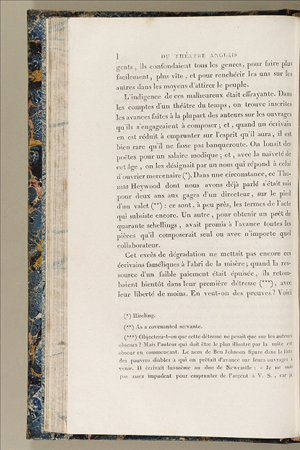 DU THÉATRE ANGLAIS
gents, ils confondaient tous les genres, pour faire plus
facilement, plus vite, et pour renchérir les uns sur les
autres dans les moyens d'attirer le peuple.
L'indigence de ces malheureux était effrayante. Dans
les comptes d'un théâtre du temps, on trouve inscrites
les avances faites à la plupart des auteurs sur les ouvrages
qu'ils s'engageaient à composer; et, quand un écrivain
en est réduit à emprunter sur l'esprit qu'il aura, il est
bien rare qu'il ne fasse pas banqueroute. On louait des
poètes pour un salaire modique; et, avec la naïveté de
cet âge, on les désignait par un nom qui répond à celui
d'ouvrier mercenaire (*). Dans une circonstance, ce Tho-
mas Heywood dont nous avons déjà parlé s'était mis
pour deux ans aux gages d'un directeur, sur le pied
d'un valet (**) : ce sont, à peu près, les termes de l'acte
qui subsiste encore. Un autre, pour obtenir un prêt de
quarante schellings, avait promis à l'avance toutes les
pièces qu'il composerait seul ou avec n'importe quel
collaborateur.
Cet excès de dégradation ne mettait pas encore ces
écrivains faméliques à l'abri de la misère; quand la res-
source d'un faible paiement était épuisée, ils retom-
baient bientôt dans leur première détresse (***), avec
leur liberté de moins. En veut-on des preuves? Voici
(*) Hireling.
(**) As a covenanted servante.
(***) Objectera-t-on que cette détresse ne pesait que sur les auteurs
obscurs? Mais l'auteur qui doit être le plus illustre par la suite est
obscur en commençant. Le nom de Ben Johnson figure dans la liste
des pauvres diables à qui on prêtait d'avance sur leurs ouvrages à
venir. Il écrivait lui-même au duc de Newcastle : « Je ne suis
pas assez impudent pour emprunter de l'argent à V. S., car je